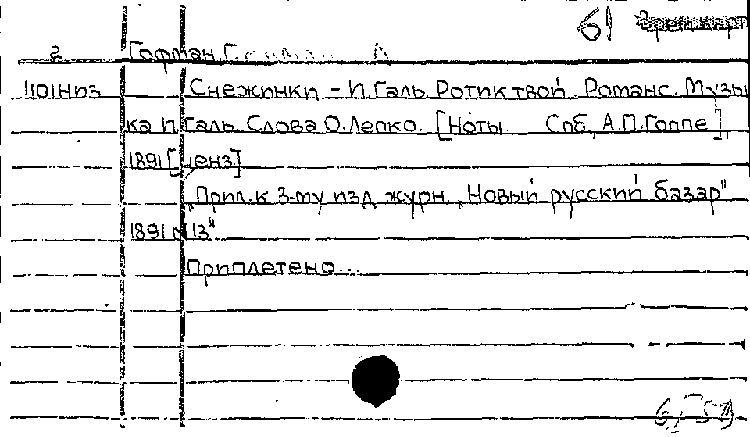 61
2 Гофман
1101низ Снежинки - И Галь Ротик твой. Романс. Музы
ка И Галь Слова О. Лепко. [Ноты Спб, А.П. Гоппе]
1891 [ценз]
"Прил. к 3-му изд журн. „Новый русский базар"
1891 N 13"
Приплетено...